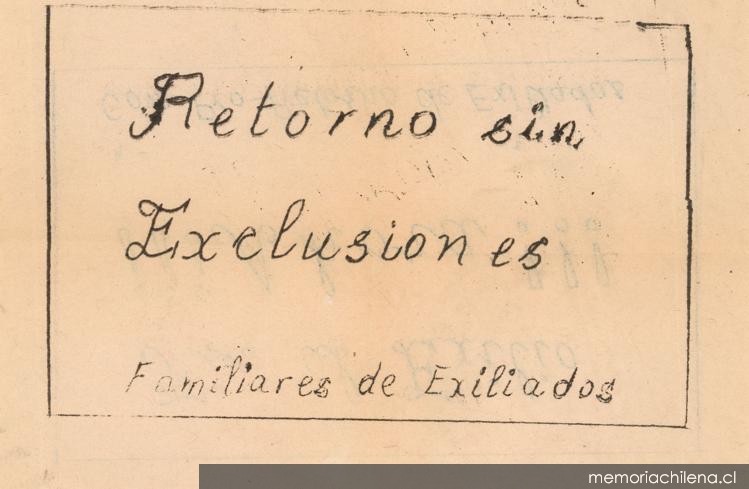 Retorno sin
Exclusiones
Familiares de Exiliados
memoriachilena.cl